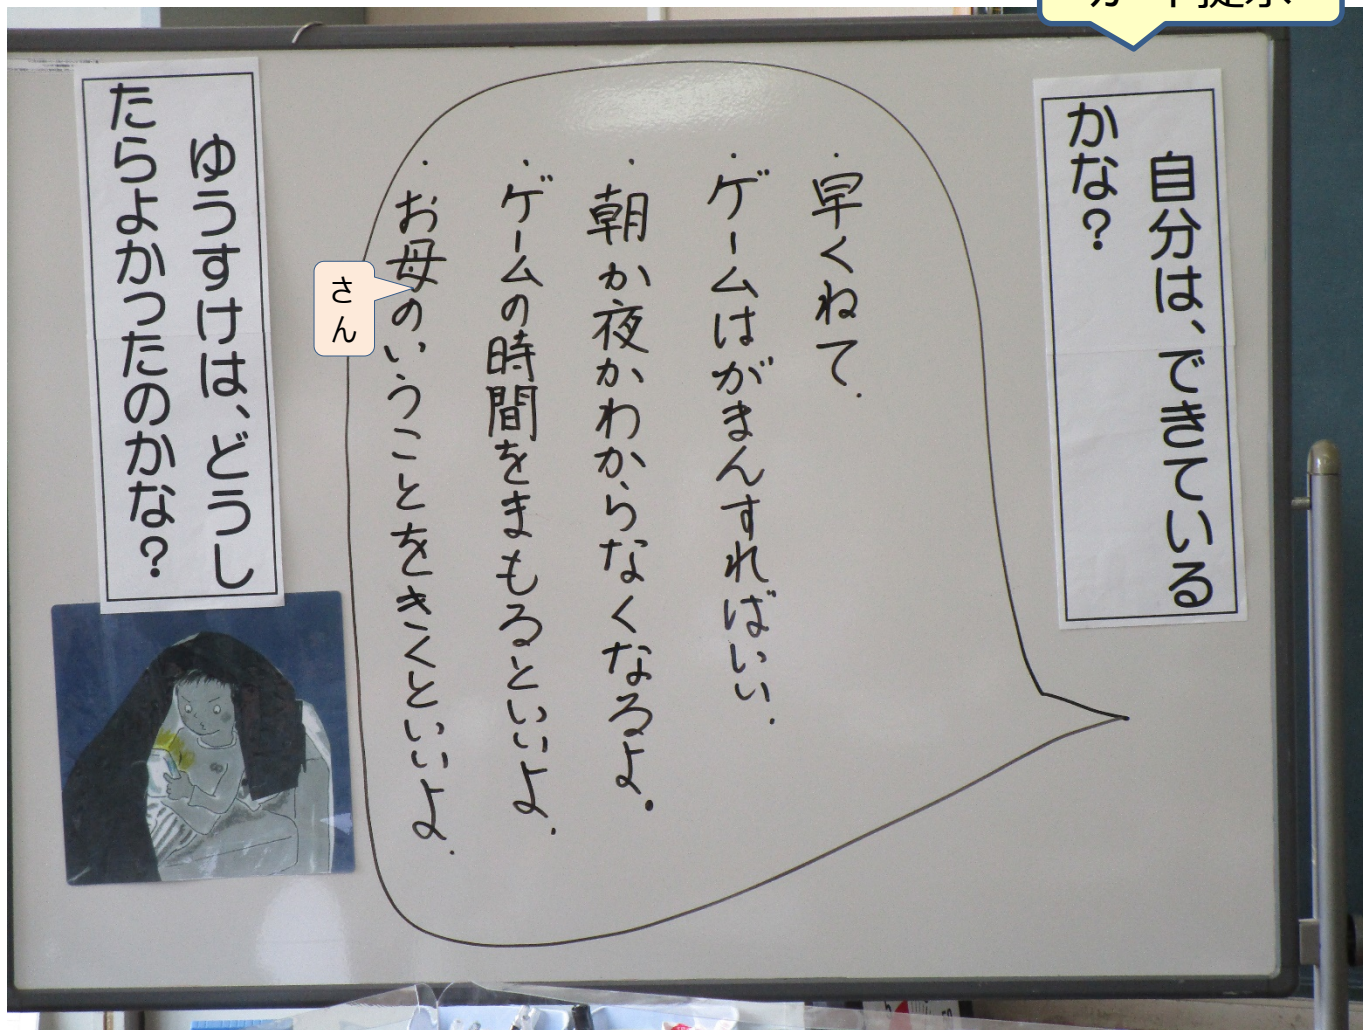 自分は、できている
かな？
・早くねて。
・ゲームはがまんすればいい。
・朝か夜かわからなくなるよ。
・ゲームの時間をまもるといいよ。
・お母のいうことをきくといいよ。
さん
ゆうすけは、どうし
たらよかったのかな？